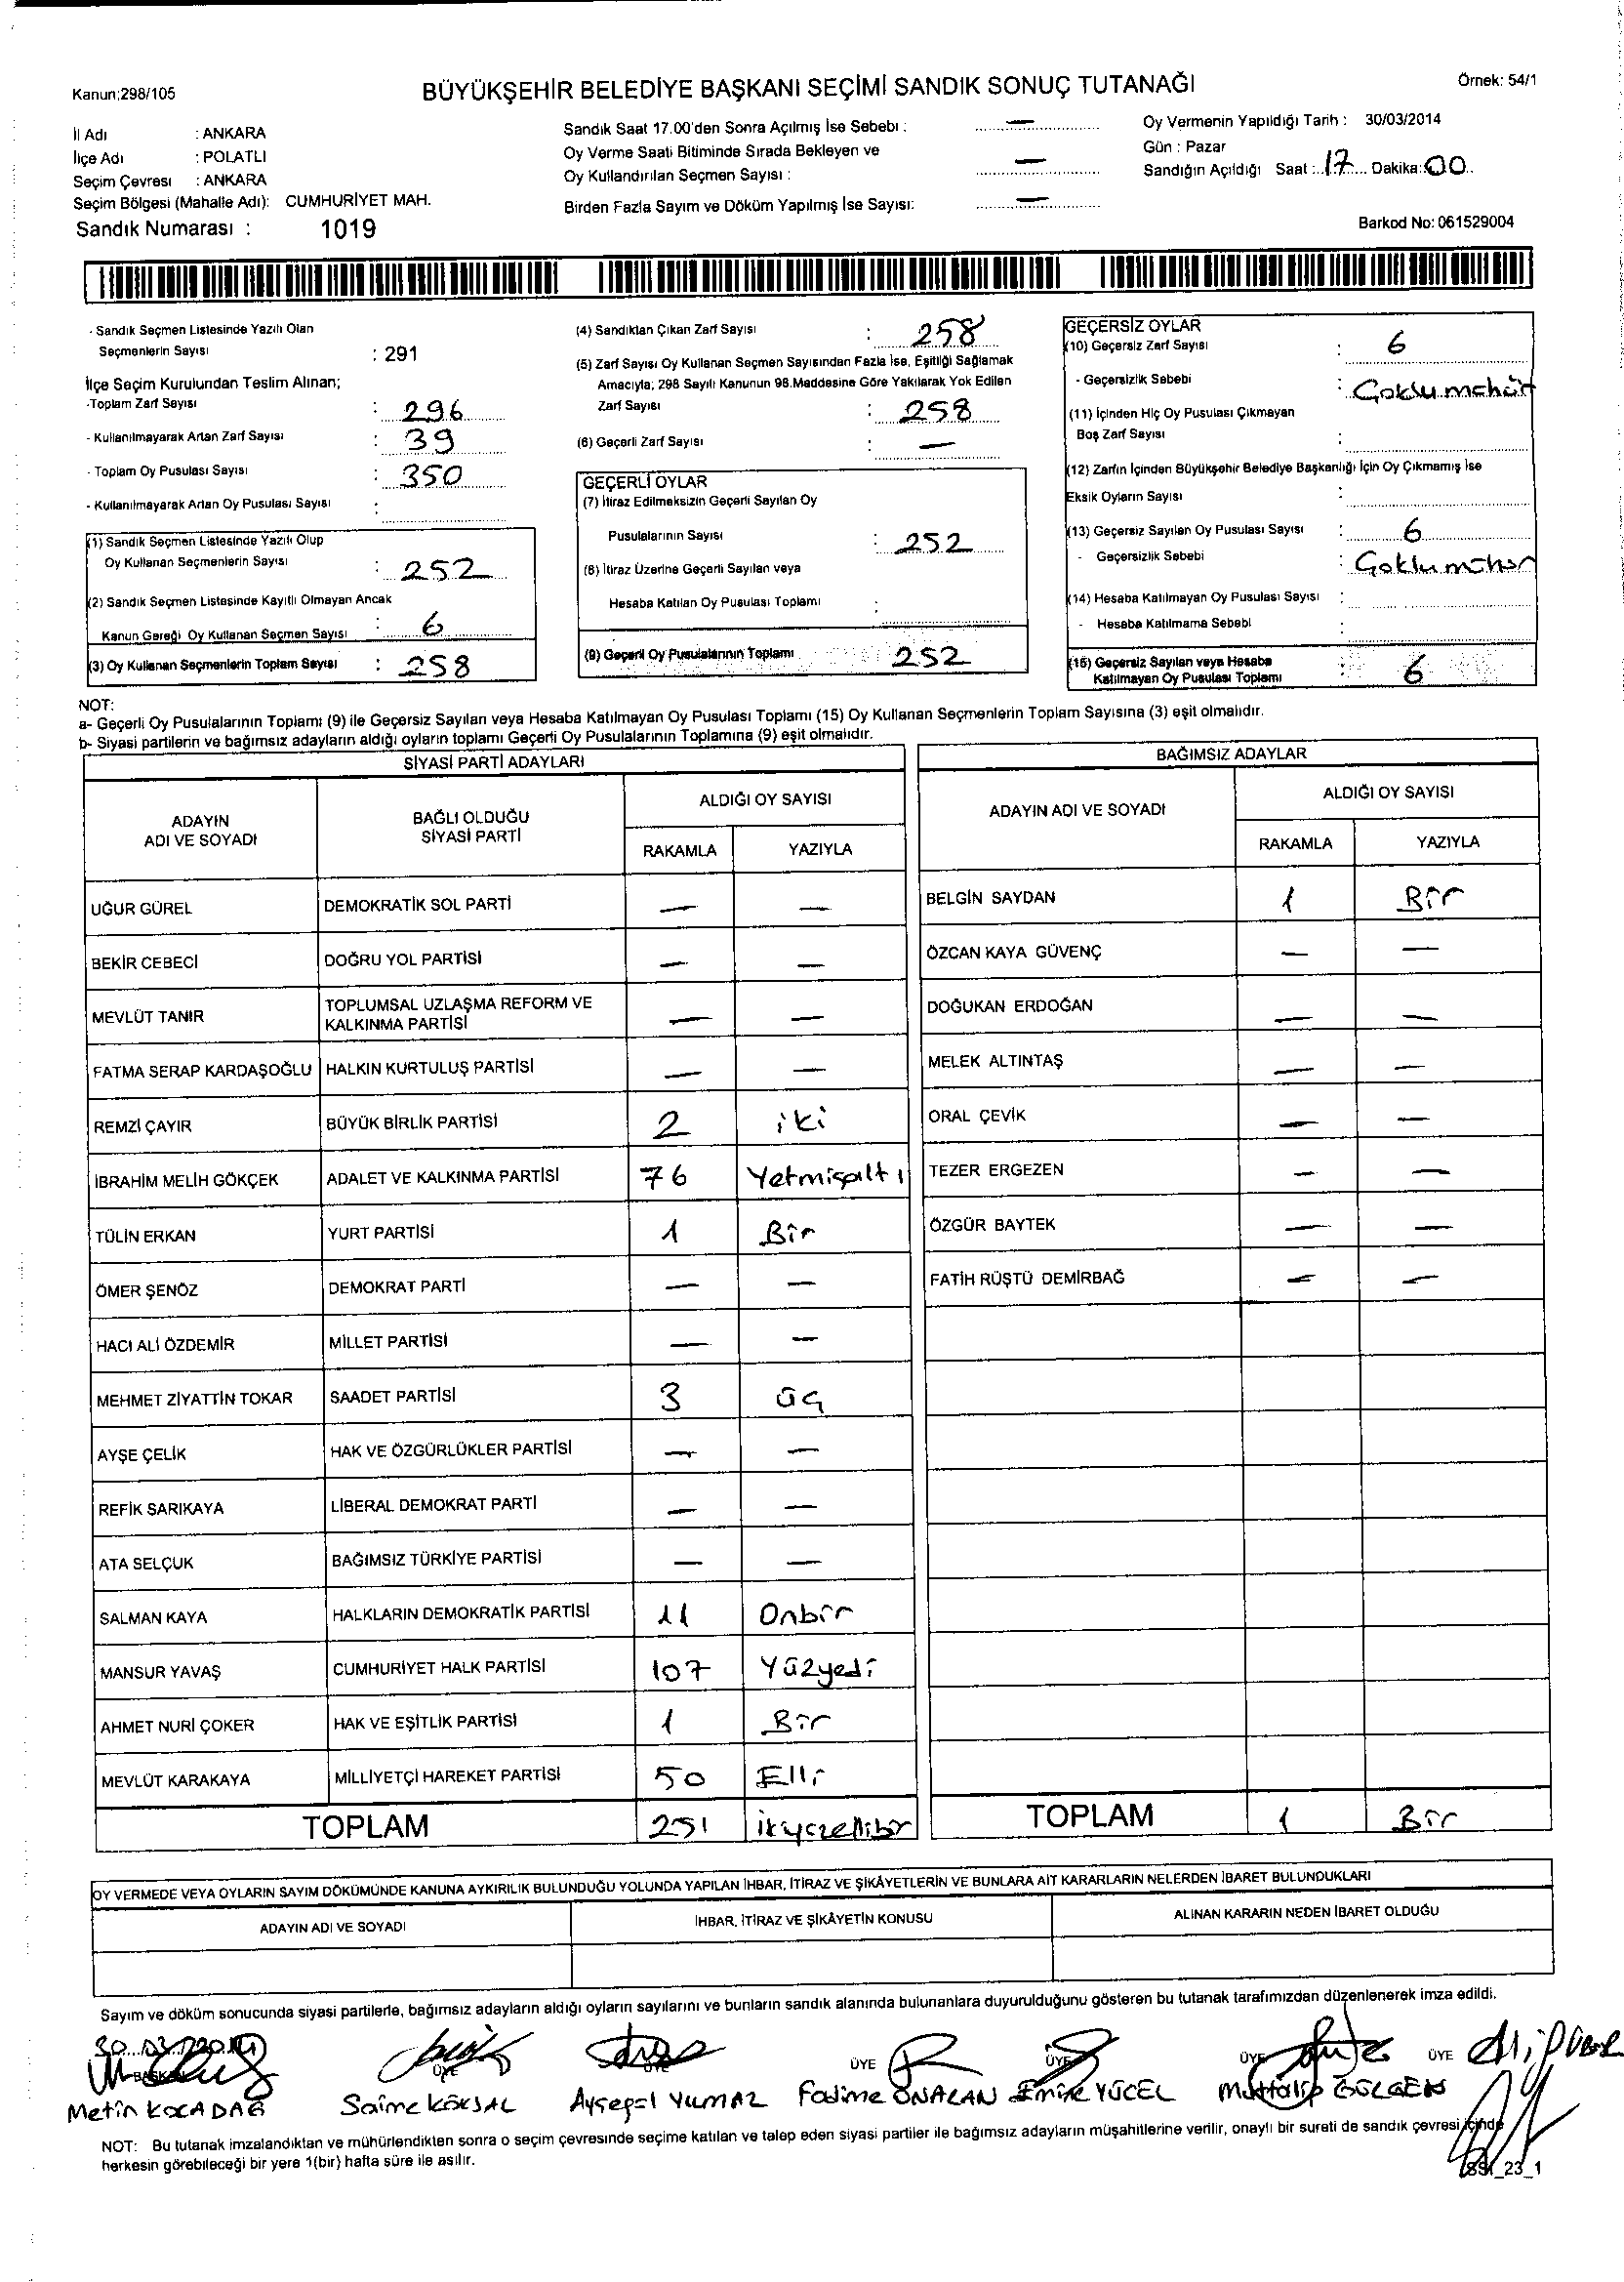 Kanun:298/105
BÜYÜKŞEHİR BELEDİYE BAŞKANI SEÇİMİ SANDIK SONUÇ TUTANAĞI
Örnek: 54/1
İl Adı : ANKARA
İlçe Adı : POLATLI
Seçim Çevresi : ANKARA
Seçim Bölgesi (Mahalle Adı): CUMHURİYET MAH.
Sandık Numarası : 1019
Sandık Saat 17.00'den Sonra Açılmış İse Sebebi : —
Oy Verme Saati Bitiminde Sırada Bekleyen ve
Oy Kullandırılan Seçmen Sayısı : —
Birden Fazla Sayım ve Döküm Yapılmış İse Sayısı: —
Oy Vermenin Yapıldığı Tarih : 30/03/2014
Gün : Pazar
Sandığın Açıldığı Saat : 17 Dakika: 00
Barkod No: 061529004
- Sandık Seçmen Listesinde Yazılı Olan
Seçmenlerin Sayısı : 291
İlçe Seçim Kurulundan Teslim Alınan;
-Toplam Zarf Sayısı : 296
- Kullanılmayarak Artan Zarf Sayısı : 39
- Toplam Oy Pusulası Sayısı : 350
- Kullanılmayarak Artan Oy Pusulası Sayısı :
(1) Sandık Seçmen Listesinde Yazılı Olup
Oy Kullanan Seçmenlerin Sayısı : 252
(2) Sandık Seçmen Listesinde Kayıtlı Olmayan Ancak
Kanun Gereği Oy Kullanan Seçmen Sayısı : 6
(3) Oy Kullanan Seçmenlerin Toplam Sayısı : 258
(4) Sandıktan Çıkan Zarf Sayısı : 258
(5) Zarf Sayısı Oy Kullanan Seçmen Sayısından Fazla İse, Eşitliği Sağlamak
Amacıyla; 298 Sayılı Kanunun 98.Maddesine Göre Yakılarak Yok Edilen
Zarf Sayısı : 258
(6) Geçerli Zarf Sayısı : —
GEÇERLİ OYLAR
(7) İtiraz Edilmeksizin Geçerli Sayılan Oy
Pusulalarının Sayısı : 252
(8) İtiraz Üzerine Geçerli Sayılan veya
Hesaba Katılan Oy Pusulası Toplamı :
(9) Geçerli Oy Pusulalarının Toplamı : 252
GEÇERSİZ OYLAR
(10) Geçersiz Zarf Sayısı : 6
- Geçersizlik Sebebi :
(11) İçinden Hiç Oy Pusulası Çıkmayan
Boş Zarf Sayısı :
(12) Zarfın İçinden Büyükşehir Belediye Başkanlığı İçin Oy Çıkmamış İse
Eksik Oyların Sayısı :
(13) Geçersiz Sayılan Oy Pusulası Sayısı : 6
- Geçersizlik Sebebi :
(14) Hesaba Katılmayan Oy Pusulası Sayısı :
- Hesaba Katılmama Sebebi :
(15) Geçersiz Sayılan veya Hesaba
Katılmayan Oy Pusulası Toplamı : 6
NOT:
a- Geçerli Oy Pusulalarının Toplamı (9) ile Geçersiz Sayılan veya Hesaba Katılmayan Oy Pusulası Toplamı (15) Oy Kullanan Seçmenlerin Toplam Sayısına (3) eşit olmalıdır.
b- Siyasi partilerin ve bağımsız adayların aldığı oyların toplamı Geçerli Oy Pusulalarının Toplamına (9) eşit olmalıdır.
SİYASİ PARTİ ADAYLARI
ADAYIN ADI VE SOYADI
BAĞLI OLDUĞU SİYASİ PARTİ
ALDIĞI OY SAYISI
RAKAMLA YAZIYLA
UĞUR GÜREL DEMOKRATİK SOL PARTİ — —
BEKİR CEBECİ DOĞRU YOL PARTİSİ — —
MEVLÜT TANIR TOPLUMSAL UZLAŞMA REFORM VE KALKINMA PARTİSİ — —
FATMA SERAP KARDAŞOĞLU HALKIN KURTULUŞ PARTİSİ — —
REMZİ ÇAYIR BÜYÜK BİRLİK PARTİSİ 2 iki
İBRAHİM MELİH GÖKÇEK ADALET VE KALKINMA PARTİSİ 76 Yetmişaltı
TÜLİN ERKAN YURT PARTİSİ 1 Bir
ÖMER ŞENÖZ DEMOKRAT PARTİ — —
HACI ALİ ÖZDEMİR MİLLET PARTİSİ — —
MEHMET ZİYATTİN TOKAR SAADET PARTİSİ 3 üç
AYŞE ÇELİK HAK VE ÖZGÜRLÜKLER PARTİSİ — —
REFİK SARIKAYA LİBERAL DEMOKRAT PARTİ — —
ATA SELÇUK BAĞIMSIZ TÜRKİYE PARTİSİ — —
SALMAN KAYA HALKLARIN DEMOKRATİK PARTİSİ 11 Onbir
MANSUR YAVAŞ CUMHURİYET HALK PARTİSİ 107 Yüzyedi
AHMET NURİ ÇOKER HAK VE EŞİTLİK PARTİSİ 1 Bir
MEVLÜT KARAKAYA MİLLİYETÇİ HAREKET PARTİSİ 50 Elli
TOPLAM 251
BAĞIMSIZ ADAYLAR
ADAYIN ADI VE SOYADI
ALDIĞI OY SAYISI
RAKAMLA YAZIYLA
BELGİN SAYDAN 1 Bir
ÖZCAN KAYA GÜVENÇ — —
DOĞUKAN ERDOĞAN — —
MELEK ALTINTAŞ — —
ORAL ÇEVİK — —
TEZER ERGEZEN — —
ÖZGÜR BAYTEK — —
FATİH RÜŞTÜ DEMİRBAĞ — —
TOPLAM 1 Bir
OY VERMEDE VEYA OYLARIN SAYIM DÖKÜMÜNDE KANUNA AYKIRILIK BULUNDUĞU YOLUNDA YAPILAN İHBAR, İTİRAZ VE ŞİKÂYETLERİN VE BUNLARA AİT KARARLARIN NELERDEN İBARET BULUNDUKLARI
ADAYIN ADI VE SOYADI İHBAR, İTİRAZ VE ŞİKÂYETİN KONUSU ALINAN KARARIN NEDEN İBARET OLDUĞU
Sayım ve döküm sonucunda siyasi partilerle, bağımsız adayların aldığı oyların sayılarını ve bunların sandık alanında bulunanlara duyurulduğunu gösteren bu tutanak tarafımızdan düzenlenerek imza edildi.
BAŞKAN ÜYE ÜYE ÜYE ÜYE ÜYE ÜYE
Metin KOCADAĞ Saime KÖKSAL Ayşegül YILMAZ Fadime ÜNALAN Emine YÜCEL
NOT: Bu tutanak imzalandıktan ve mühürlendikten sonra o seçim çevresinde seçime katılan ve talep eden siyasi partiler ile bağımsız adayların müşahitlerine verilir, onaylı bir sureti de sandık çevresi içinde
herkesin görebileceği bir yere 1(bir) hafta süre ile asılır.